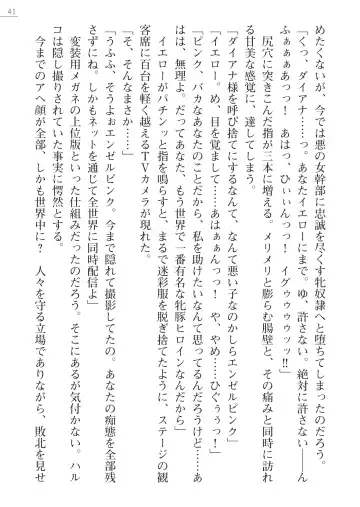 41
めたくないが、今では悪の女幹部に忠誠を尽くす牝奴隷へと堕ちてしまったのだろう。
「くっ、ダイアナ……っ。あなたイエローにまで。ゆ、許さない。絶対に許さない――ん
ふぁぁぁあっっ！　あはっ、ひぃぃんっっ！　イグゥゥゥゥッッ!!」
尻穴に突きこんだ指が三本に増える。メリメリと膨らむ腸壁と、その痛みと同時に訪れ
る甘美な感覚に、達してしまう。
「ダイアナ様を呼び捨てにするなんて、なんて悪い子なのかしらエンゼルピンク」
「イエロー。め、目を覚まして……あはぁぁんっっ！　や、やめ……ひぐぅぅっ！」
「ピンク、バカなあなたのことだから、私を助けたいなんて思ってるんだろうけど……あ
はは、無理よ。だってあなた、もう世界で一番有名な牝豚ヒロインなんですもの」
イエローがパチンッと指を鳴らすと、まるで迷彩服を脱ぎ捨てたように、ステージの観
客席に百台を軽く越えるＴＶカメラが現れた。
「そ、そんなまさか……」
「うふふ、そうよおエンゼルピンク。今まで隠れて撮影してたの。あなたの痴態を全部残
さずにね。しかもネットを通じて全世界に同時配信よ」
変装用メガネの上位版といった仕組みだったのだろう。そこにあるが気付かない。ハル
コは隠し撮りされていた事実に愕然とする。
今までのアヘ顔が全部、しかも世界中に？　人々を守る立場でありながら、敗北を見せ